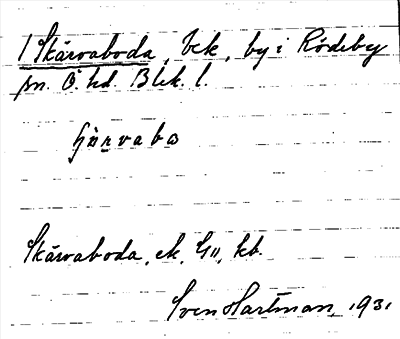 1 Skärvaboda, bck, by i Rödeby
sn. Ö. hd. Blek. l.
Skärvaboda, ek, G11, kb.
Sven Hartman, 1931